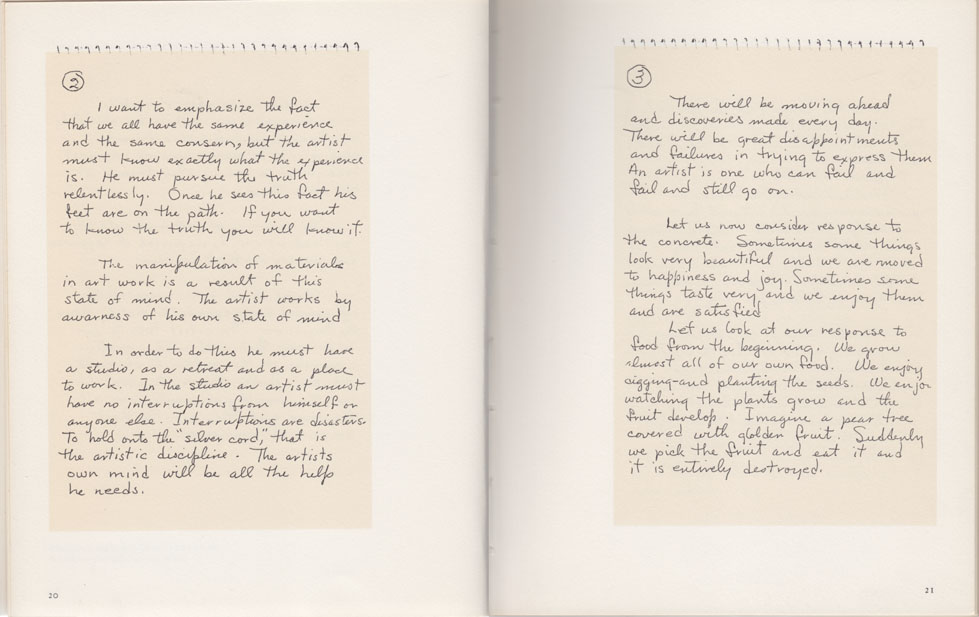 2
I want to emphasize the fact
that we all have the same experience
and the same concern, but the artist
must know exactly what the experience
is. He must pursue the truth
relentlessly. Once he sees this fact his
feet are on the path. If you want
to know the truth you will know it.
The manipulation of materials
in art work is a result of this
state of mind. The artist works by
awarness of his own state of mind
In order to do this he must have
a studio, as a retreat and as a place
to work. In the studio an artist must
have no interruptions from himself or
anyone else. Interruptions are disasters.
To hold onto the "silver cord," that is
the artistic discipline. The artists
own mind will be all the help
he needs.
20
3
There will be moving ahead
and discoveries made every day.
There will be great disappointments
and failures in trying to express them
An artist is one who can fail and
fail and still go on.
Let us now consider response to
the concrete. Sometimes some things
look very beautiful and we are moved
to happiness and joy. Sometimes some
things taste very and we enjoy them
and are satisfied
Let us look at our response to
food from the beginning. We grow
almost all of our own food. We enjoy
digging and planting the seeds. We enjoy
watching the plants grow and the
fruit develop. Imagine a pear tree
covered with golden fruit. Suddenly
we pick the fruit and eat it and
it is entirely destroyed.
21